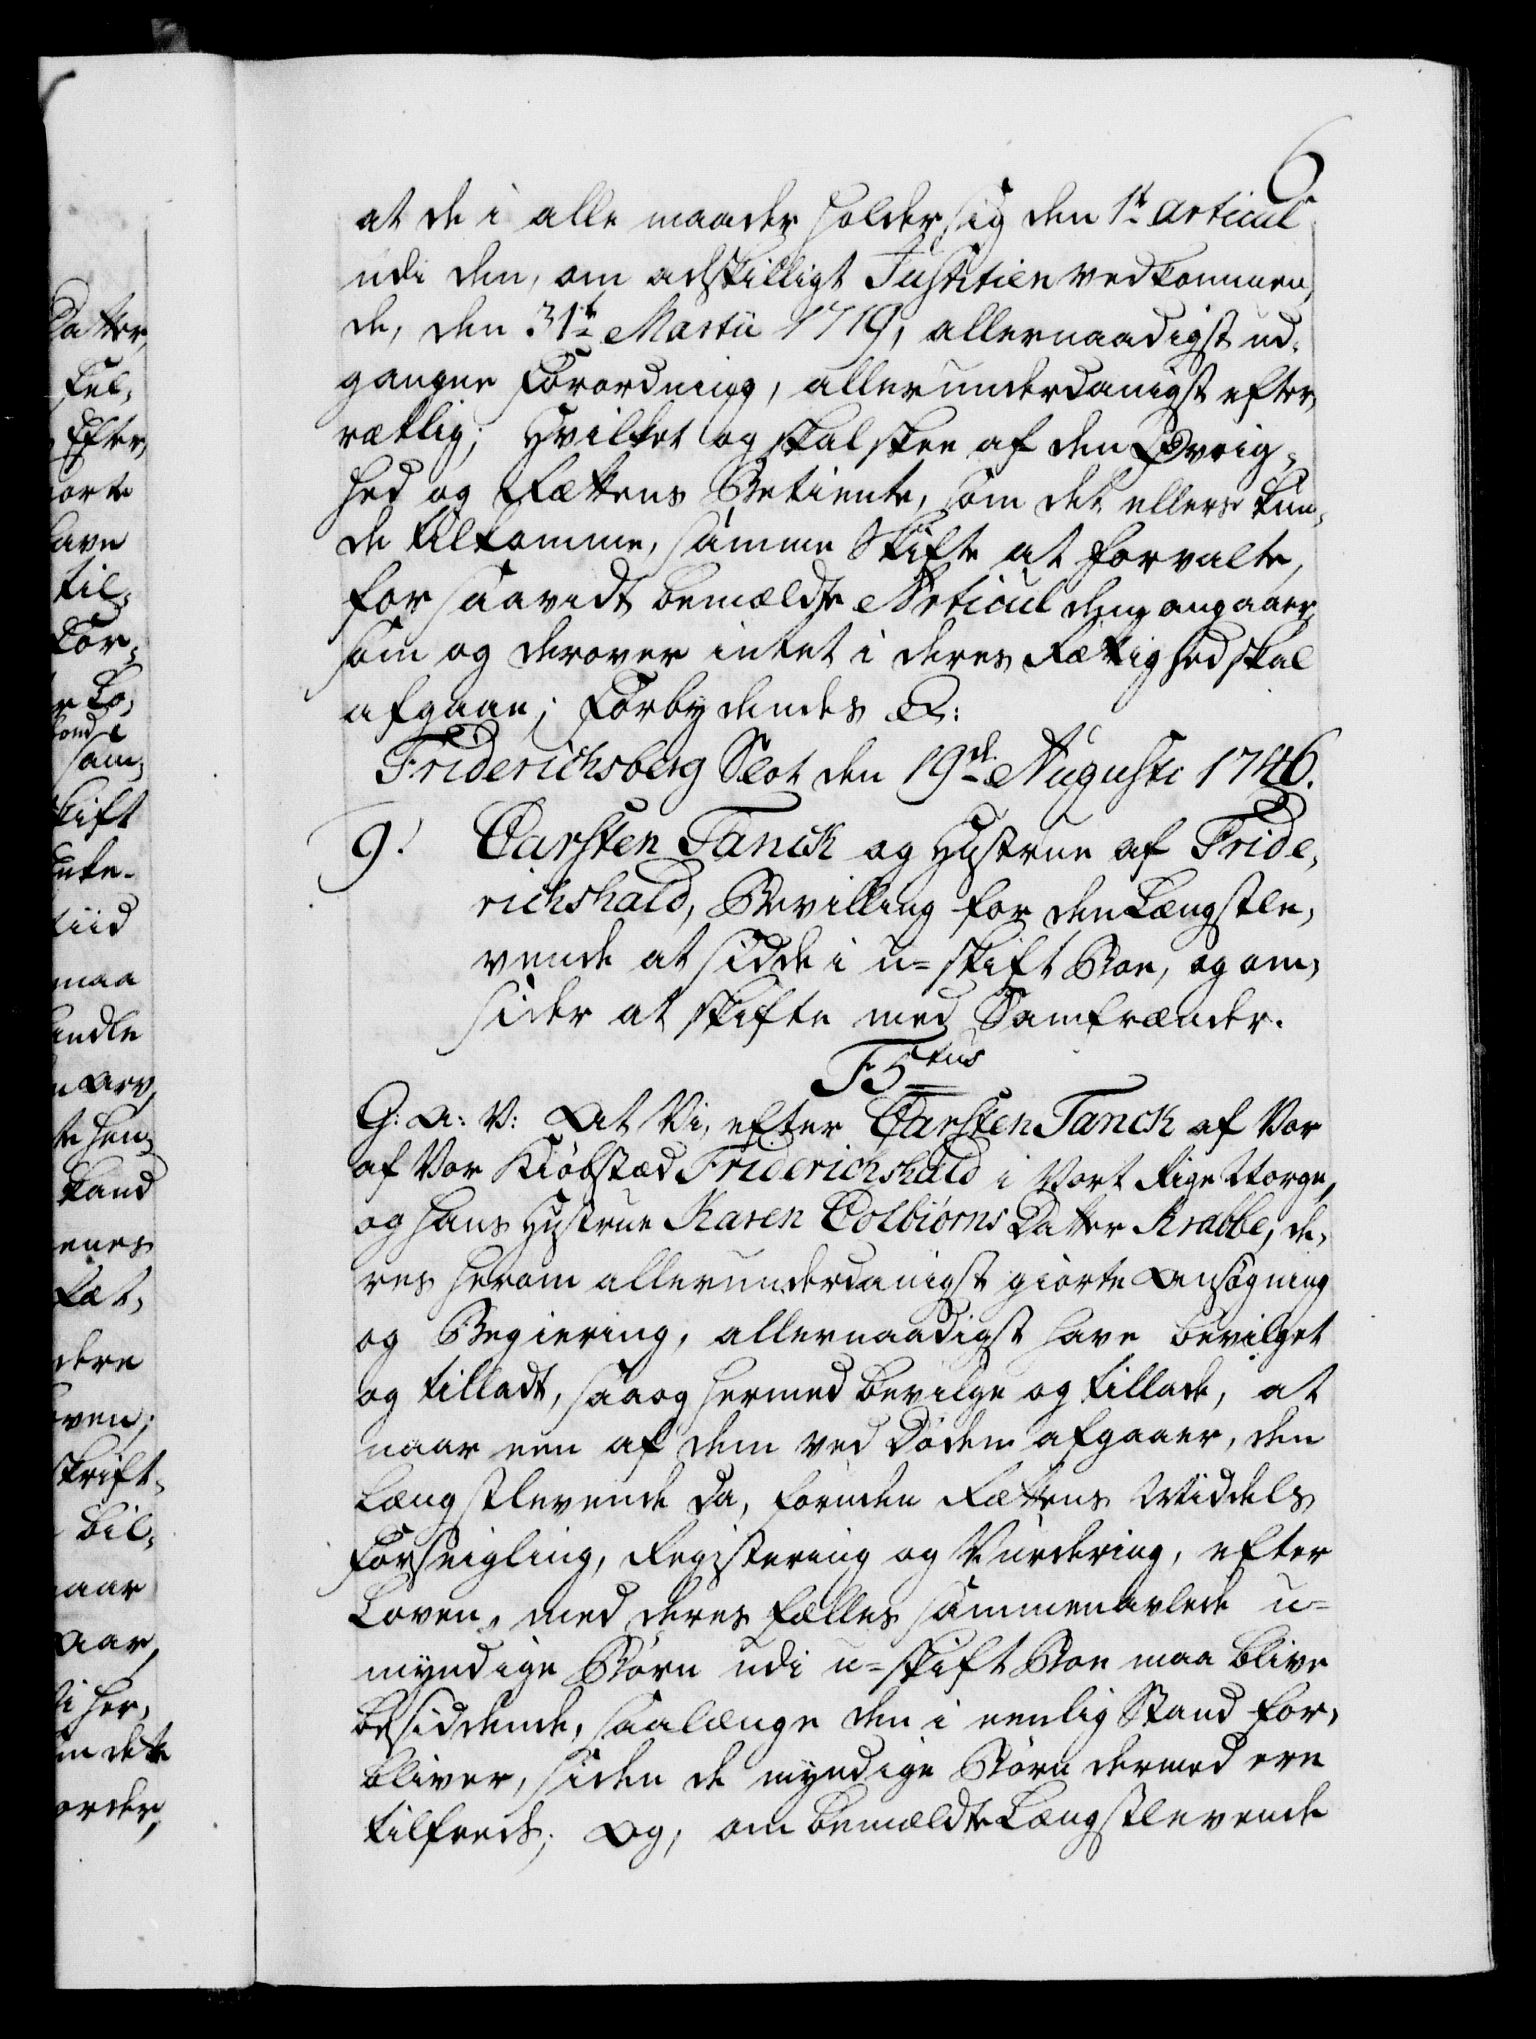 6
at de i alle maader holder sig den 1te articul
udi den, om adskilligt Justitien vedkommen,
de, den 31te Martii 1719, allernaadigst ud-
gangne Forordning, allerunderdanigst efter,
rætlig; Hvilket og skal skee af den Øvrig,
hed og Rættens Betiente, som det ellers kun,
de tilkomme, samme Skifte at forvalte,
for saavidt bemældte Articul dem angaaer,
som og derover intet i deres Rættighed skal
afgaae; Forbydendes &:
Friderichsberg Slot den 19de Augusti 1746.
9. Carsten Tanck og Hustrue af Fride,
richshald, Bevilling for den Længstle,
vende at sidde i u-skift Boe, og om,
sider at skifte med Samfrænder.
F5tus
G: A: V: At Vi, efter Carsten Tanck af Vor
af Vor Kiøbstæd Friderichshald i Vort Rige Norge,
og hans Hustrue Karen Colbiørns Datter Krabbe, de,
res herom allerunderdanigst giorte Ansøgning
og Begiering, allernaadigst have bevilget
og tilladt, saa og hermed bevilge og tillade, at
naar een af dem ved Døden afgaaer, den
Længstlevende da, foruden Rættens Middels
Forseigling, Registering og Vurdering, efter
Loven, med deres fælles sammenavlede u-
myndige Børn udi u-skift Boe maa blive
besiddende, saalænge den i eenlig Stand for,
bliver, siden de myndige Børn dermed ere
tilfreds; Og, om bemældte Længstlevende
Datter,
Fel,
Efter,
iorte
have
til,
For,
r Lo,
sam,
skift
tiid
maa
andle
n Arv,
te hen
stand
enes
Ræt,
dere
oven;
skrift,
bil,
naar
Aar,
i her,
m dette
order,